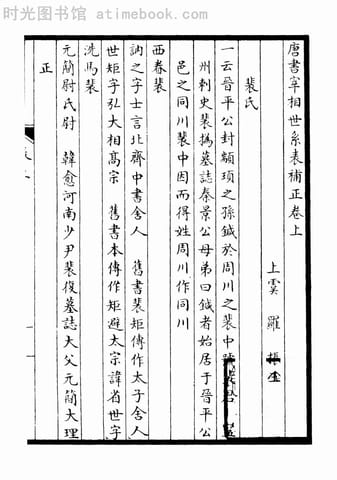 时光图书馆 www.atimebook.com
唐書宰相世系表補正卷上
上虞 羅
裴氏
一云晉平公封顓頊之孫鍼於周川之裴中
州刺史裴撝墓誌秦景公母弟曰鍼者始居于晉平公
邑之同川裴中因而得姓周川作同川
西眷裴
訥之字士言北齊中書舍人 舊書裴矩傳作太子舍人
世矩字弘大相高宗 舊書本傳作矩避太宗諱省世字
洗馬裴
元簡尉氏尉 韓愈河南少尹裴復墓誌大父元簡大理
正